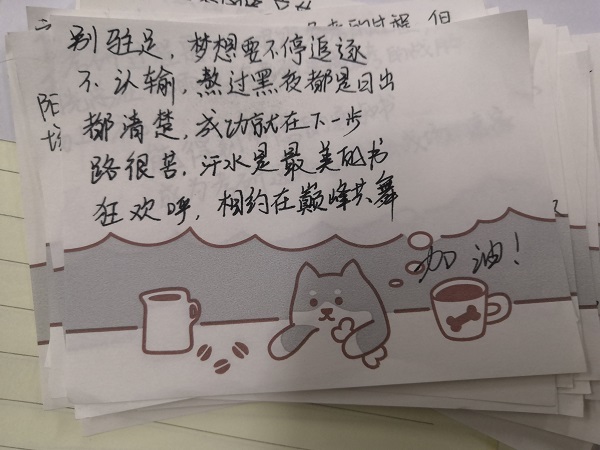 别驻足，梦想要不停追逐
不认输，熬过黑夜都是日出
都清楚，成功就在下一步
路很苦，汗水是最美的书
狂欢呼，相约在巅峰共舞
加油！